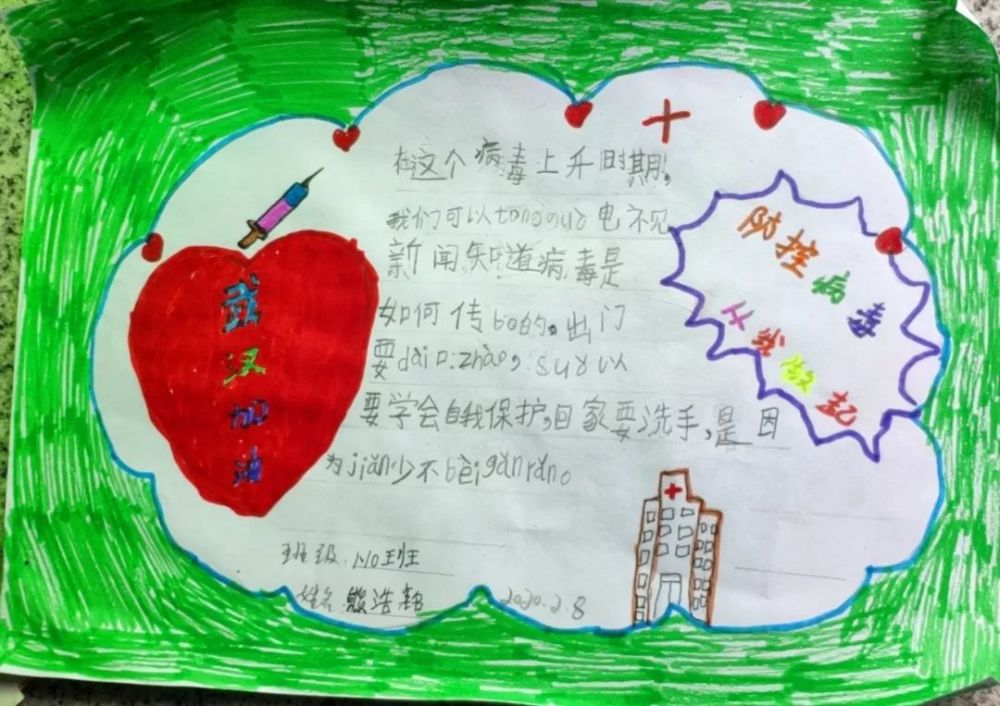 武汉加油
在这个病毒上升时期,
我们可以tongguo电视
新闻知道病毒是
如何传bo的。出门
要dài口zhào, suǒyǐ
要学会自我保护,回家要洗手,是因
为jiǎn少不bèigǎnrǎn。
防控病毒
从我做起
班级:
2020.2.8